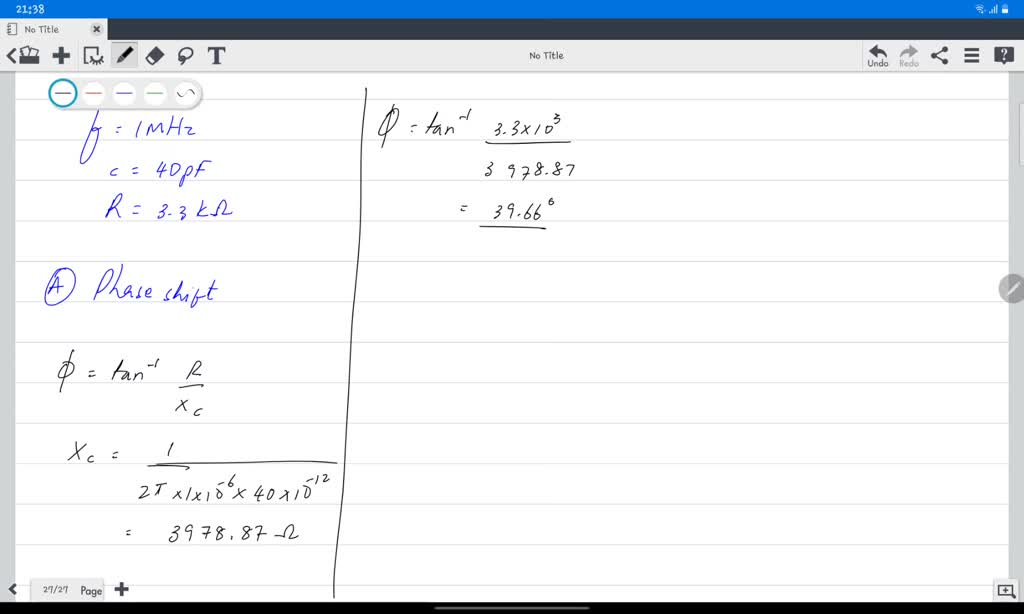 21:38
No Title
No Title
Undo
Redo
f = 1 MHz
c = 40 pF
R = 3.3 kΩ
Ⓐ Phase shift
ϕ = tan⁻¹ R
Xc
Xc = 1
2π × 1 × 10⁻⁶ × 40 × 10⁻¹²
= 3978.87 Ω
ϕ = tan⁻¹ 3.3 × 10³
3 978.87
= 39.66°
27/27 Page